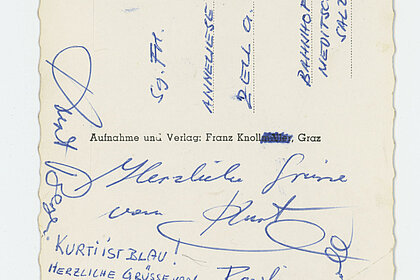 SG. FR.
ANNELIESE
BAHNHOF
SALZ
Aufnahme und Verlag: Franz Knoll , Graz
Herzliche Grüsse
vom Kurt
KURTI IST BLAU!
HERZLICHE GRÜSSE VON